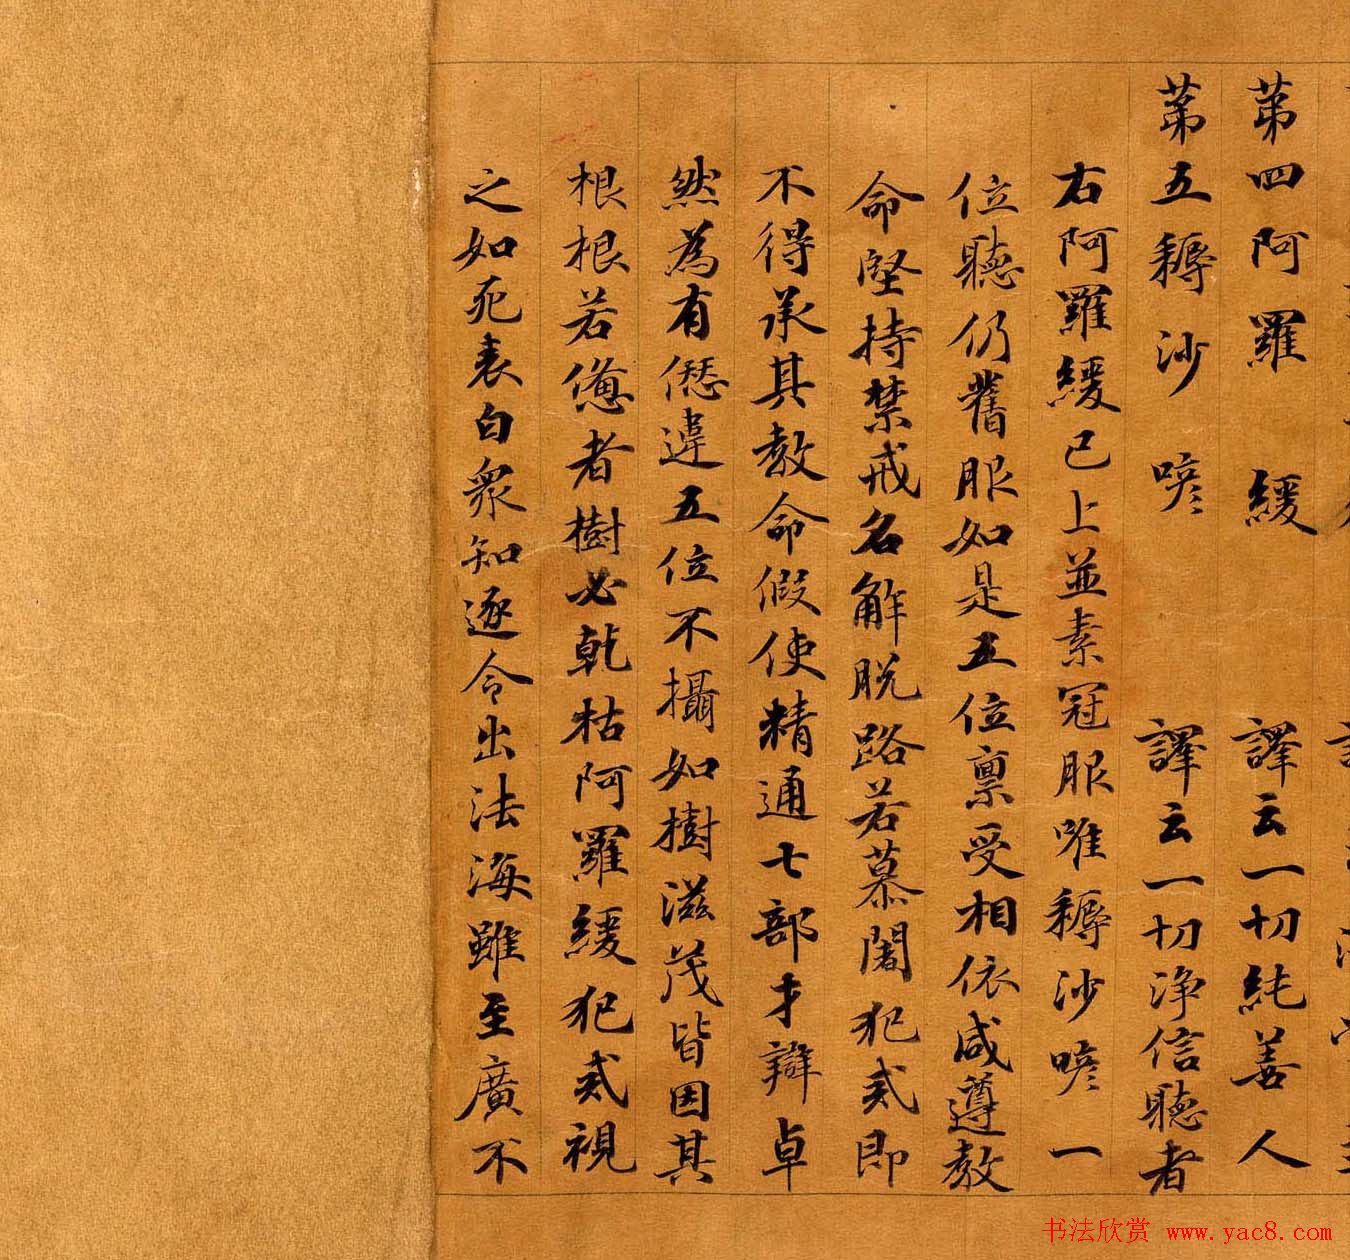 第四阿羅緩 譯云一切純善人
第五耨沙喭 譯云一切淨信聽者
右阿羅緩已上並素冠服唯耨沙喭一
位聽仍舊服如是五位稟受相依咸遵教
命堅持禁戒名解脫路若慕闍犯貳即
不得承其教命假使精通七部才辯卓
然為有𠎝違五位不攝如樹滋茂皆因其
根根若憊者樹必乾枯阿羅緩犯貳視
之如死表白眾知逐令出法海雖至廣不
书法欣赏 www.yac8.com